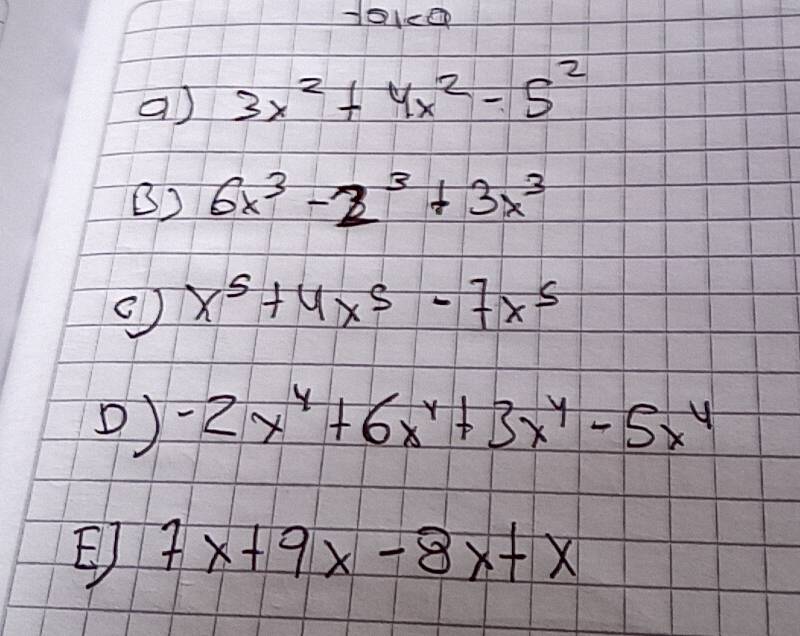 a) 3x² + 4x² - 5²
B) 6x³ - ³ + 3x³
c) x⁵ + 4x⁵ - 7x⁵
D) -2x⁴ + 6x⁴ + 3x⁴ - 5x⁴
E) 7x + 9x - 8x + x